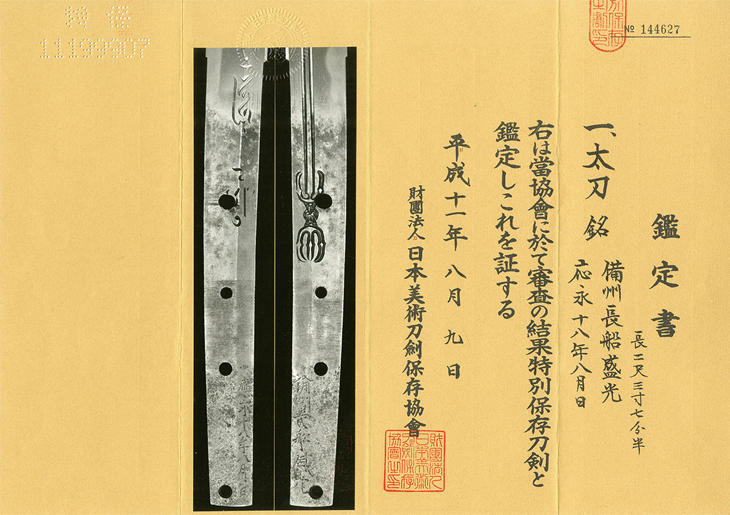 № 144627
鑑定書
長二尺三寸七分半
一、太刀 銘 備州長船盛光
應永十八年八月日
右は當協會に於て審査の結果特別保存刀剣と
鑑定しこれを証する
平成十一年八月九日
財團法人 日本美術刀劍保存協會
11199307